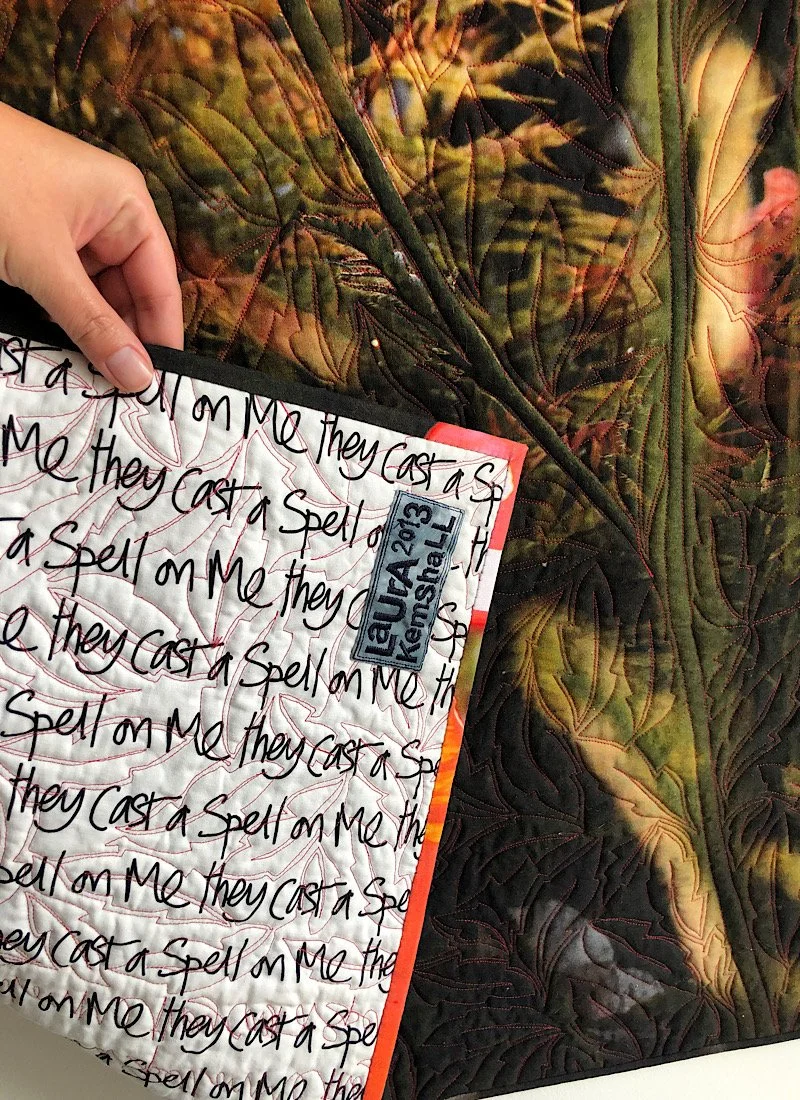 ast a Spell on Me they Cast a Sp
Me they Cast a Spell o th
a Spell on Me they C Sp
e they Cast a Spell on Me th
Spell on Me they Cast a Spe
they Cast a Spell on Me the
pell on Me they Cast a Spe
hey Cast a Spell on Me the
ell on Me they Cast a Spe
a Spell on Me the
LaUrA 2013
KemShaLL